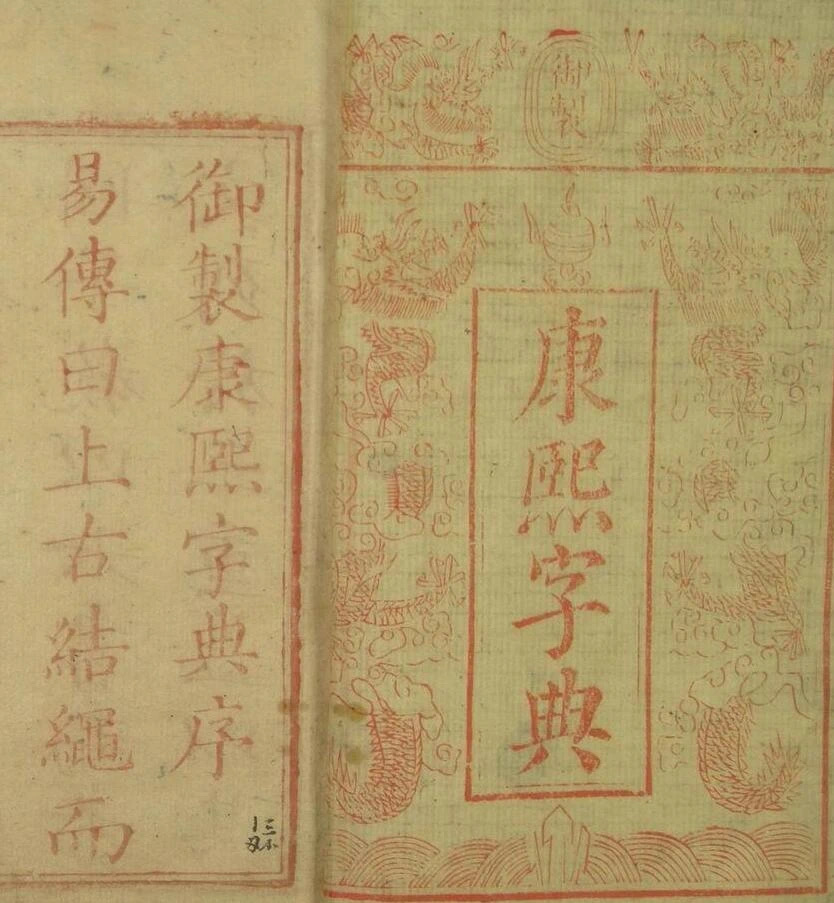 御製
康熙字典
御製康熙字典序
易傳曰上古結繩而